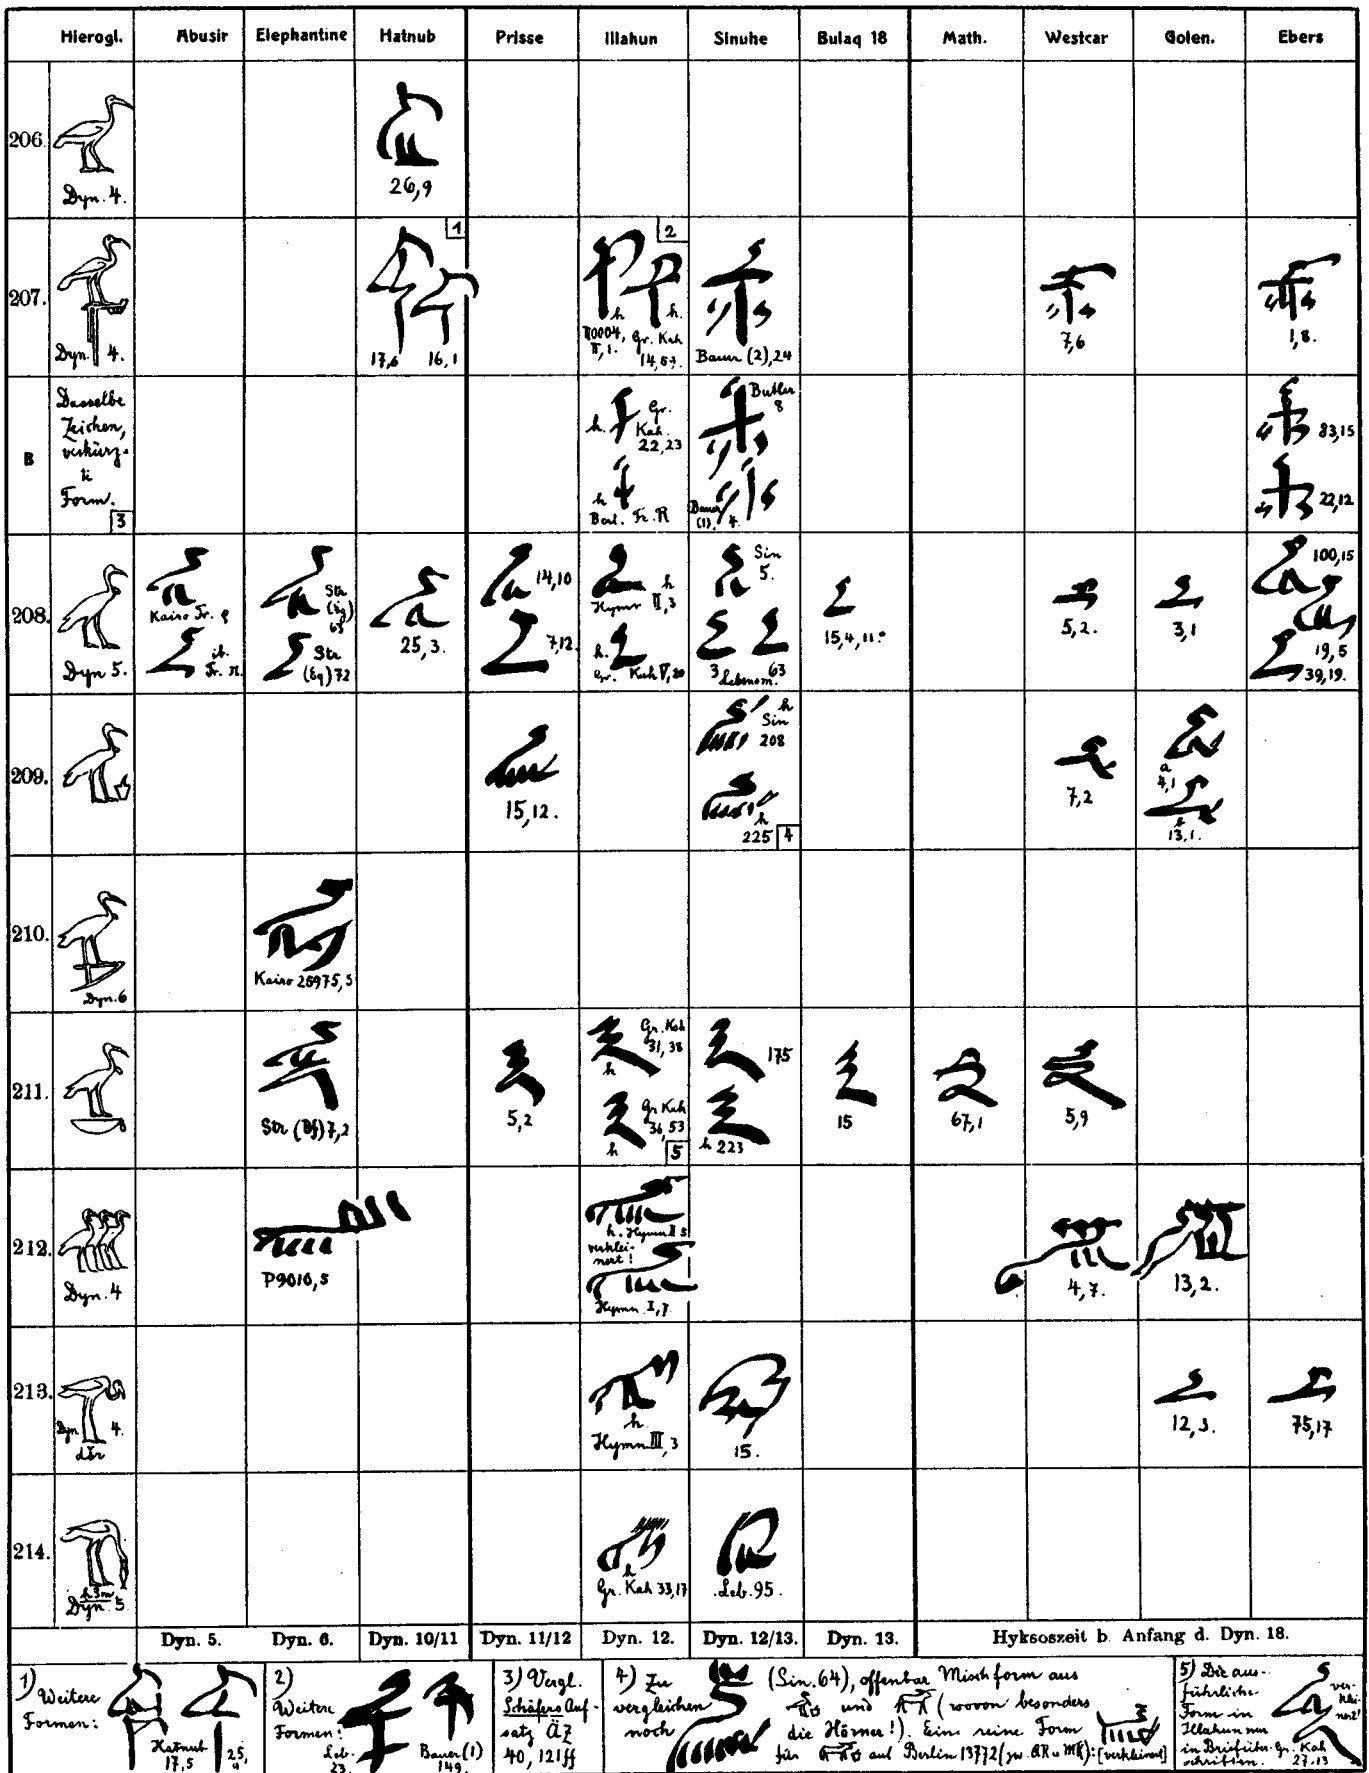 Hierogl. Abusir Elephantine Hatnub Prisse Illahun Sinuhe Bulaq 18 Math. Westcar Golen. Ebers
206.
Dyn. 4.
26,9
207.
Dyn. 4.
1
17,6 16,1
2
h h.
II,1. Gr. Kah
14,53.
Bauer (2),24
7,6
1,8.
B
Dasselbe
Zeichen,
verkürz-
te
Form.
3
h. Gr.
Kah.
22,23
h
Berl. Fr. R
Butler
8
Bauer
(1), 4.
83,15
22,12
208.
Dyn 5.
Kairo Fr. 9
ib.
Fr. R.
Str
(Eg)
65
Str
(Eg) 72
25,3.
14,10
7,12.
h
Hymn II,3
h.
Gr. Kah V,20
Sin
5.
3 Lebensm. 63
15,4,11.
5,2.
3,1
100,15
19,5
39,19.
209.
15,12.
h
Sin
208
h
225 4
7,2
a
4,1
13,1.
210.
Dyn. 6
Kairo 25975,5
211.
Str (Bf) 7,2
5,2
Gr. Kah
31,38
h
Gr Kah
36,53
h 5
175
h 223
15
67,1
5,9
212.
Dyn. 4
P9010,5
h. Hymn II 5
verklei-
nert!
Hymn. I,7.
4,7.
13,2.
213.
Dyn 4.
dšr
h
Hymn III,3
15.
12,3.
75,17
214.
Dyn. 5
h
Gr. Kah 33,17
Leb. 95.
Dyn. 5. Dyn. 6. Dyn. 10/11 Dyn. 11/12 Dyn. 12. Dyn. 12/13. Dyn. 13. Hyksoszeit b. Anfang d. Dyn. 18.
1) Weitere
Formen:
Hatnub
17,5 25,
2)
Weitere
Formen:
Leb.
23. Bauer (1)
149.
3) Vergl.
Schäfers Auf-
satz ÄZ
40, 121ff
4) Zu
vergleichen
noch
(Sin. 64), offenbar Mischform aus
und (wovon besonders
die Hörner!). Eine reine Form
für auf Berlin 13772 (zw. AR u MR): [verkleinert]
5) Die aus-
führliche
Form in
Illahun nur
in Briefüber-
schriften.
ver-
klei-
nert!
Gr. Kah
27,13